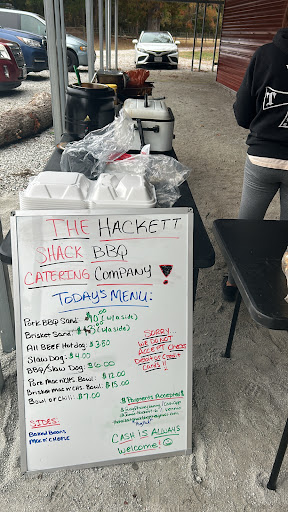 THE HACKETT
SHACK BBQ
CATERING COMPANY
TODAY'S MENU:
Pork BBQ Sand: $10 (w/a side)
Brisket Sand: $13 (w/a side)
All Beef Hotdog: $3.50
Slaw Dog: $4.00
BBQ/Slaw Dog: $6.00
Pork Mac n CHS. Bowl: $12.00
Brisket Mac n CHS. Bowl: $15.00
Bowl of Chili: $7.00
SORRY
WE DO NOT
ACCEPT CHECKS
Debit or Credit
Cards!!
SIDES:
Baked Beans
Mac n' Cheese
$ Payments Accepted $
CASH IS ALWAYS
Welcome!